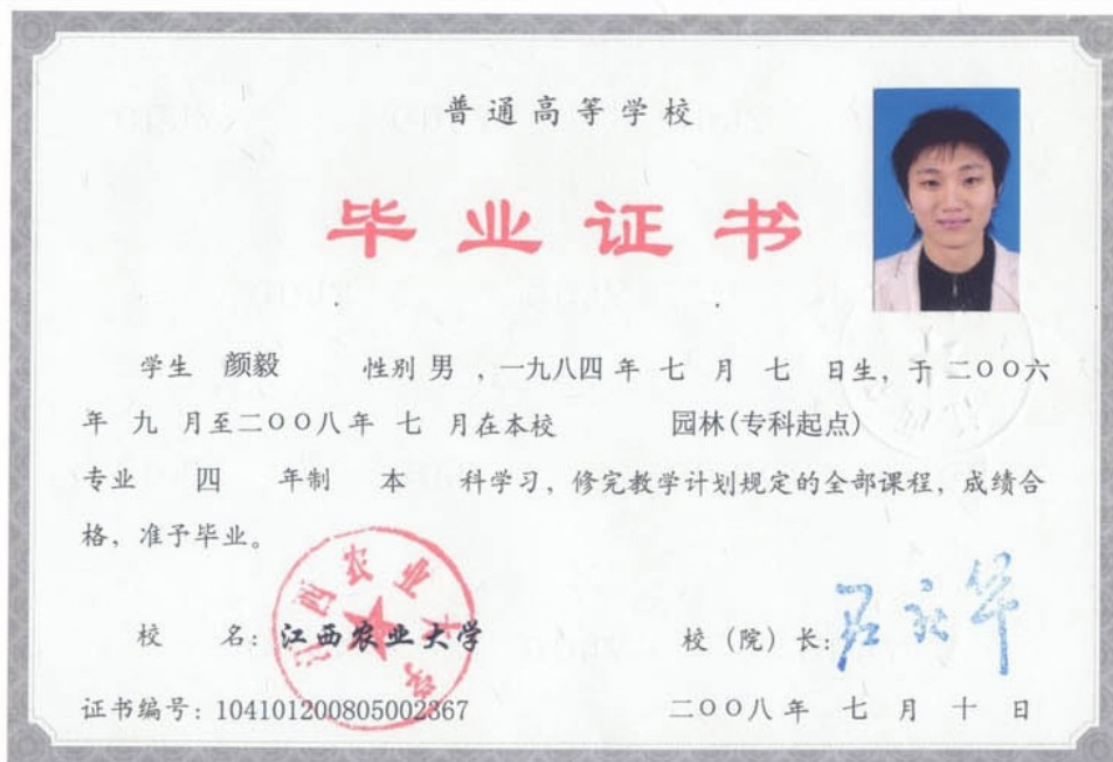 普通高等学校
毕业证书
学生 颜毅 性别 男 ,一九八四 年 七 月 七 日生,于 二〇〇六
年 九 月至二〇〇八年 七 月在本校 园林(专科起点)
专业 四 年制 本 科学习,修完教学计划规定的全部课程,成绩合
格,准予毕业。
江西农业大学
校 名:江西农业大学 校(院)长:
证书编号:104101200805002367 二〇〇八年 七 月 十 日